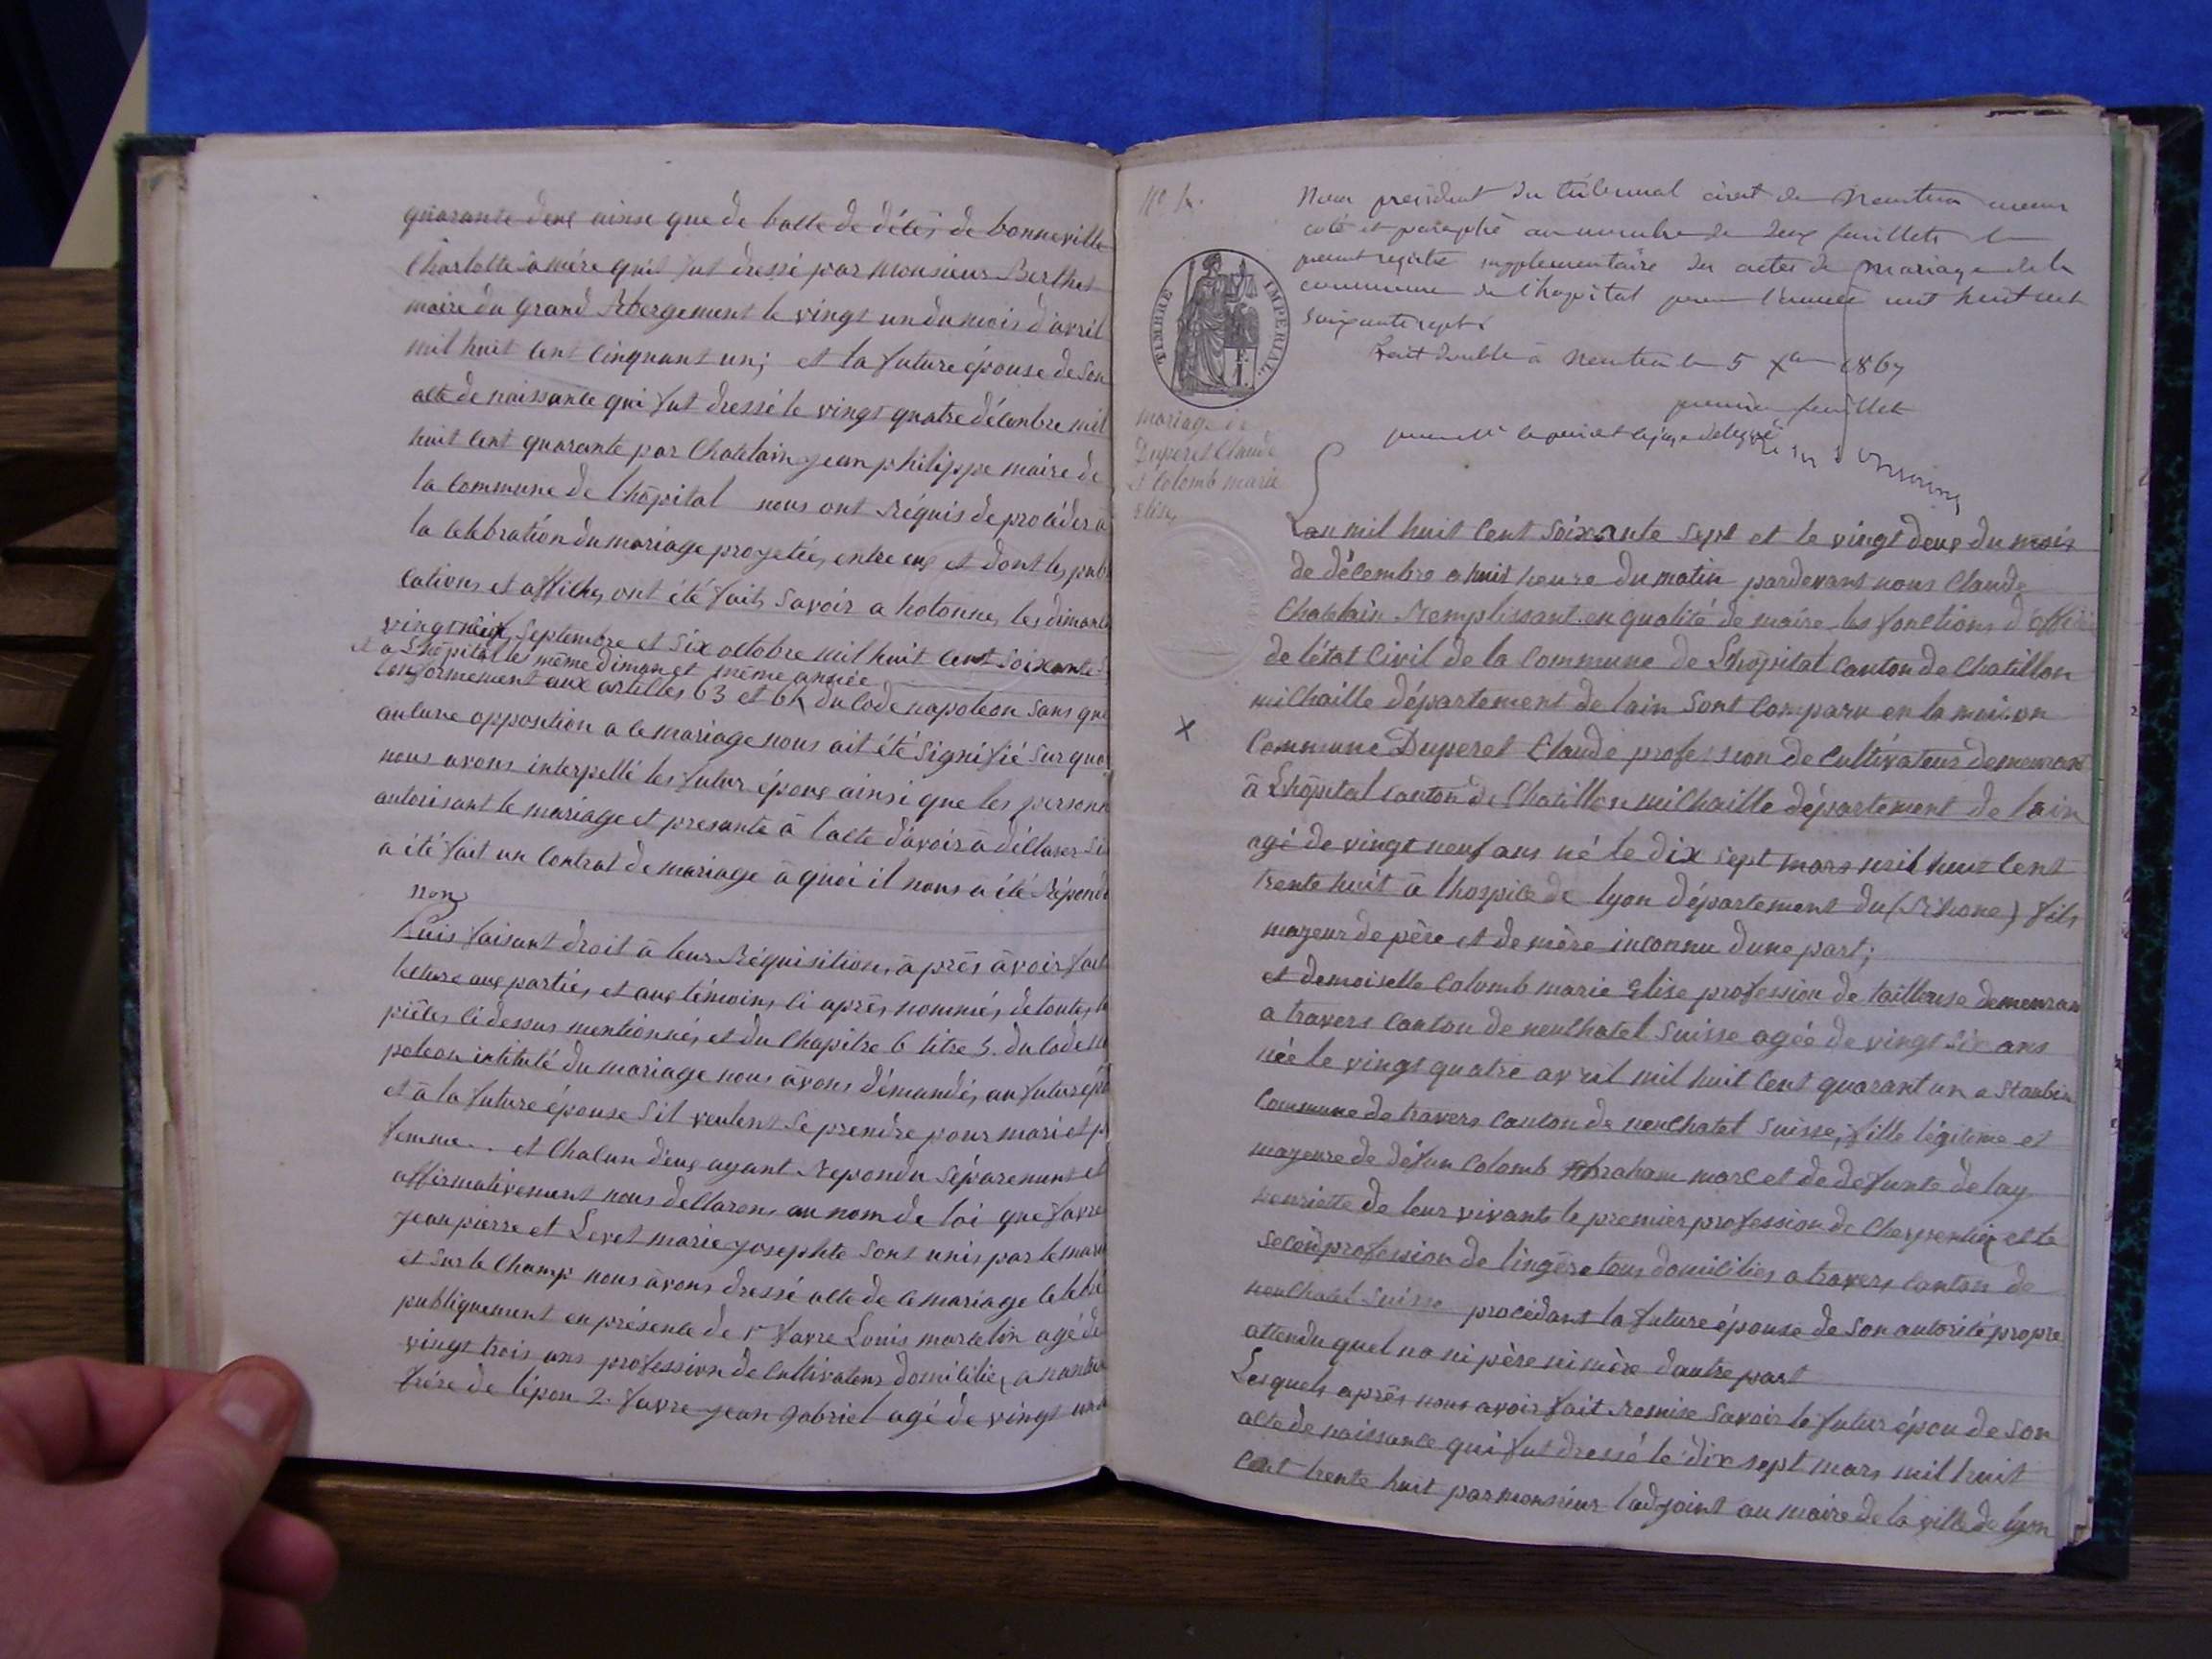 quarante deux ainsi que de l'acte de décès de bonneville
Charlotte sa mère qui fut dressé par Monsieur Berthet
maire du grand Abergement le vingt un du mois d'avril
mil huit cent cinquant un; et la future épouse de son
acte de naissance qui fut dressé le vingt quatre décembre mil
huit cent quarante par Chatelain jean philippe maire de
la Commune de l'hôpital nous ont Réquis de procéder à
la célébration du mariage projetée, entre eux et dont les publi
cations et affiches ont été fait, savoir a hotonne, les dimanch
vingt neuf Septembre et six octobre mil huit cent soixante
et a Lhôpital les même diman et même année
conformement aux articles 63 et 64 du Code napoleon sans que
aucune opposition a ce mariage nous ait été signifié sur quoi
nous avons interpellé les futur époux ainsi que les personn
autorisant le mariage et presante à l'acte d'avoir à déclarer si
à été fait un Contrat de mariage à quoi il nous a été Répondu
non
Puis faisant droit à leur Réquisition, après avoir fait
lecture aux partie, et aux témoins, ci après nommés, de toutes le
pièces ci dessus mentionnés, et du Chapitre 6 titre 5. du Code na
poleon intitulé du mariage nous avons démandé, au futur épo
et à la future épouse s'il veulent se prendre pour mari et p
femme.. et Chacun d'eux ayant Repondu séparement et
affirmativement nous declarons au nom de loi que favre
jean pierre et Levet marie josephte sont unis par le mari
et sur le champ nous avons dressé acte de ce mariage célébré
publiquement en présence de 1° favre Louis marcelin agé de
vingt trois ans profession de Cultivateur domicilié, a nantua
frère de l'épou 2. favre jean gabriel agé de vingt un a
N° 4.
Nous president du tribunal civil de Nantua avons
coté et paraphé au nombre de deux feuillets le
present registre supplementaire des actes de Mariage de la
commune de l'hopital pour l'année mil huit cent
soixante sept.
Fait double à Nantua le 5 Xbre 1867
premier feuillet
TIMBRE IMPERIAL.
mariage de
Duperet Claude
et Colomb marie
Elise,
Lan mil huit Cent Soixante Sept et le vingt deux du mois
de décembre a huit heure du matin pardevant nous Claude
Chatelain Remplissant en qualité de maire les fonctions d'officié
de l'état Civil de la Commune de Lhôpital Canton de Chatillon
michaille département de lain sont Comparu en la maison
Commune Duperet Claude profession de Cultivateur demeurant
à Lhôpital canton de Chatillon michaille département de lain
agé de vingt neuf ans né le dix sept mars mil huit Cent
trente huit à l'hospice de lyon département du (Rihone) fils
mageur de père et de mère inconnu dune part;
X
et demoiselle Colomb marie Elise profession de tailleuse demeuran
a travers canton de neuchatel Suisse agée de vingt six ans
née le vingt quatre avril mil huit Cent quarant un a Staubin
Commune de travers Canton de neuchatel Suisse, fille légitime et
mageure de défun Colomb Abraham marc et de defunte delay
henriette de leur vivants le premier profession de Cherpentier et la
second profession de lingère tous domicilies a travers canton de
neuchatel Suisse procédant la future épouse de son autorité propre
attendu quel na ni père ni mère dautre part
Lesquels après nous avoir fait Remise savoir le futur épou de son
acte de naissance qui fut dressé le dix sept mars mil huit
Cent trente huit par monsieur ladjoint au maire de la ville de lyon